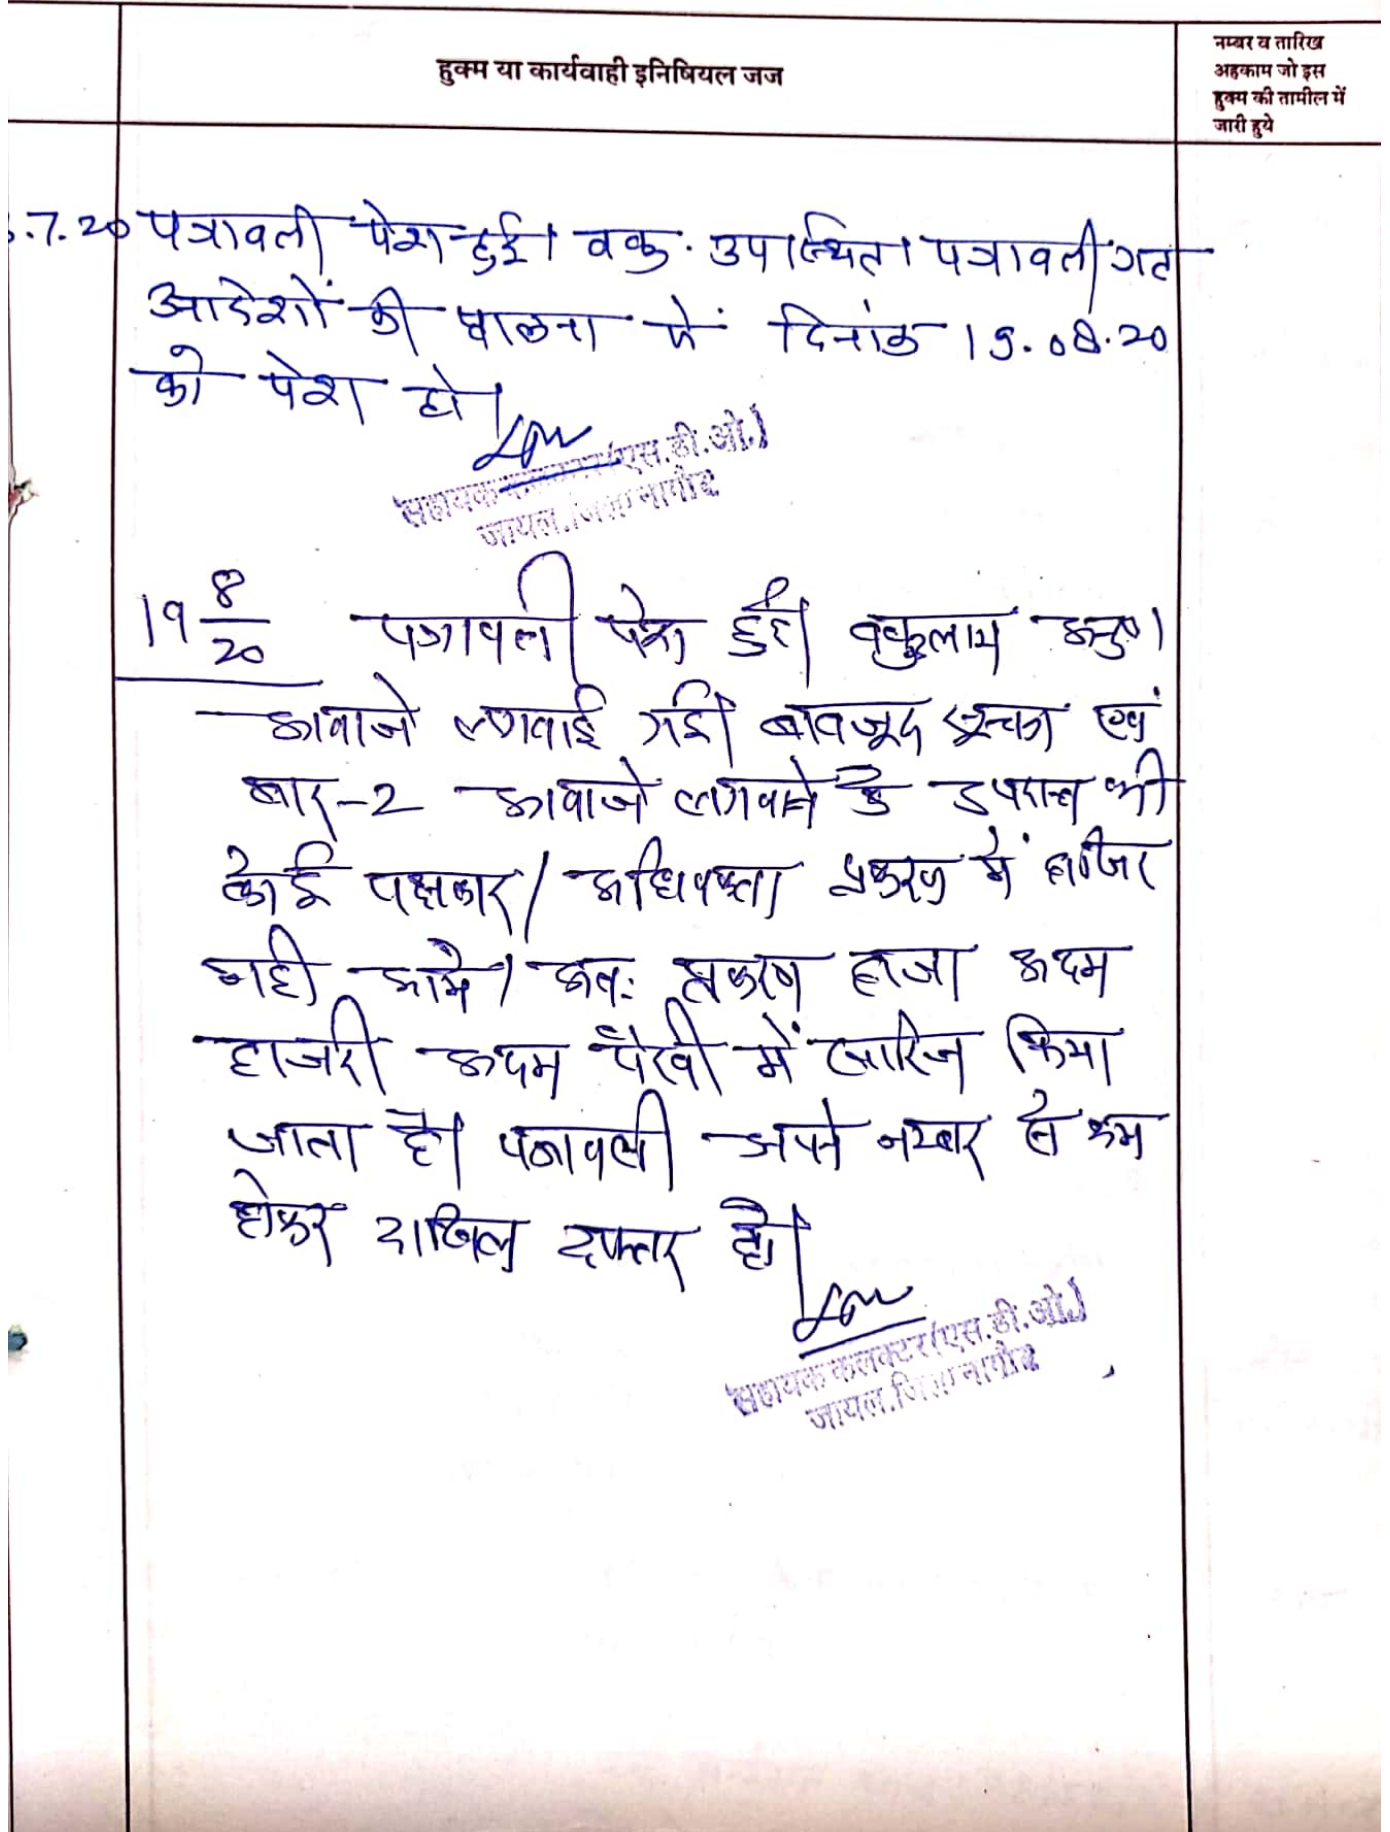 हुक्म या कार्यवाही इनिषियल जज
नम्बर व तारिख
अहकाम जो इस
हुक्म की तामील में
जारी हुये
.7.20 पत्रावली पेश हुई। वकु. उपस्थित। पत्रावली गत
आदेशों की पालना में दिनांक 19.08.20
को पेश हो।
सहायक कलक्टर(एस.डी.ओ.)
जायल.जिला नागौर
19 8/20 पत्रावली पेश हुई। वकुलाय अनु०।
आवाजे लगवाई गई। बावजूद सूचना एवं
बार-2 आवाजे लगवाने के उपरान्त भी
कोई पक्षकार/अधिवक्ता प्रकरण में हाजिर
नही आये। अतः प्रकरण हाजा अदम
हाजरी अदम पैरवी में खारिज किया
जाता है। पत्रावली अपने नम्बर से कम
होकर दाखिल दफ्तर हो।
सहायक कलक्टर(एस.डी.ओ.)
जायल.जिला नागौर